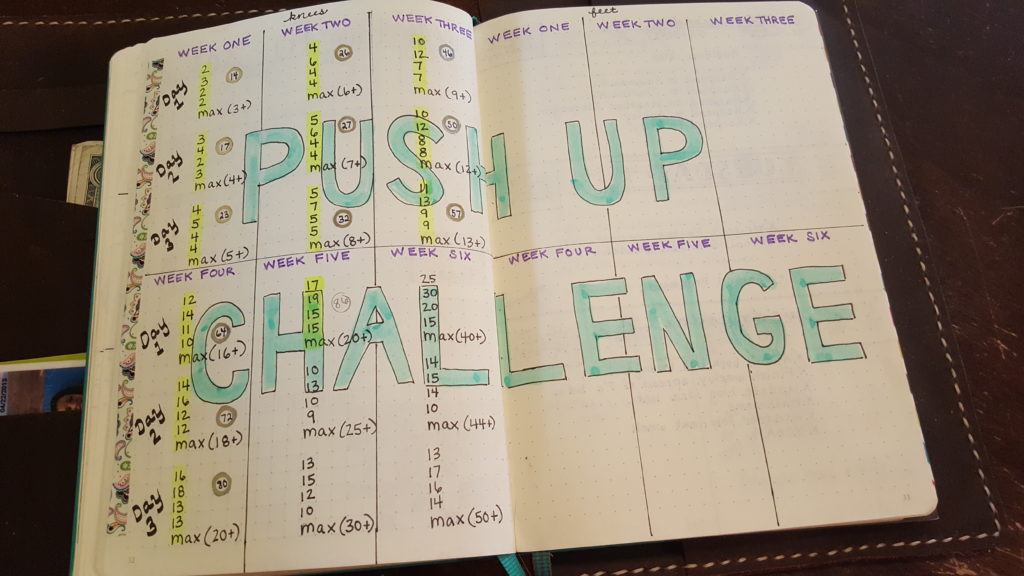 knees
WEEK ONE
WEEK TWO
WEEK THREE
Day 1
2
3
2
2
max (3+)
14
4
6
4
4
max (6+)
26
10
12
7
7
max (9+)
46
Day 2
3
4
2
3
max (4+)
17
5
6
4
4
max (7+)
27
10
12
8
8
max (12+)
50
Day 3
4
5
4
4
max (5+)
23
5
7
5
5
max (8+)
32
11
13
9
9
max (13+)
57
WEEK FOUR
WEEK FIVE
WEEK SIX
Day 1
12
14
11
10
max (16+)
64
17
19
15
15
max (20+)
86
25
30
20
15
max (40+)
Day 2
14
16
12
12
max (18+)
72
10
13
10
9
max (25+)
14
15
14
10
max (44+)
Day 3
16
18
13
13
max (20+)
80
13
15
12
10
max (30+)
13
17
16
14
max (50+)
32
feet
WEEK ONE
WEEK TWO
WEEK THREE
WEEK FOUR
WEEK FIVE
WEEK SIX
33
PUSH UP
CHALLENGE